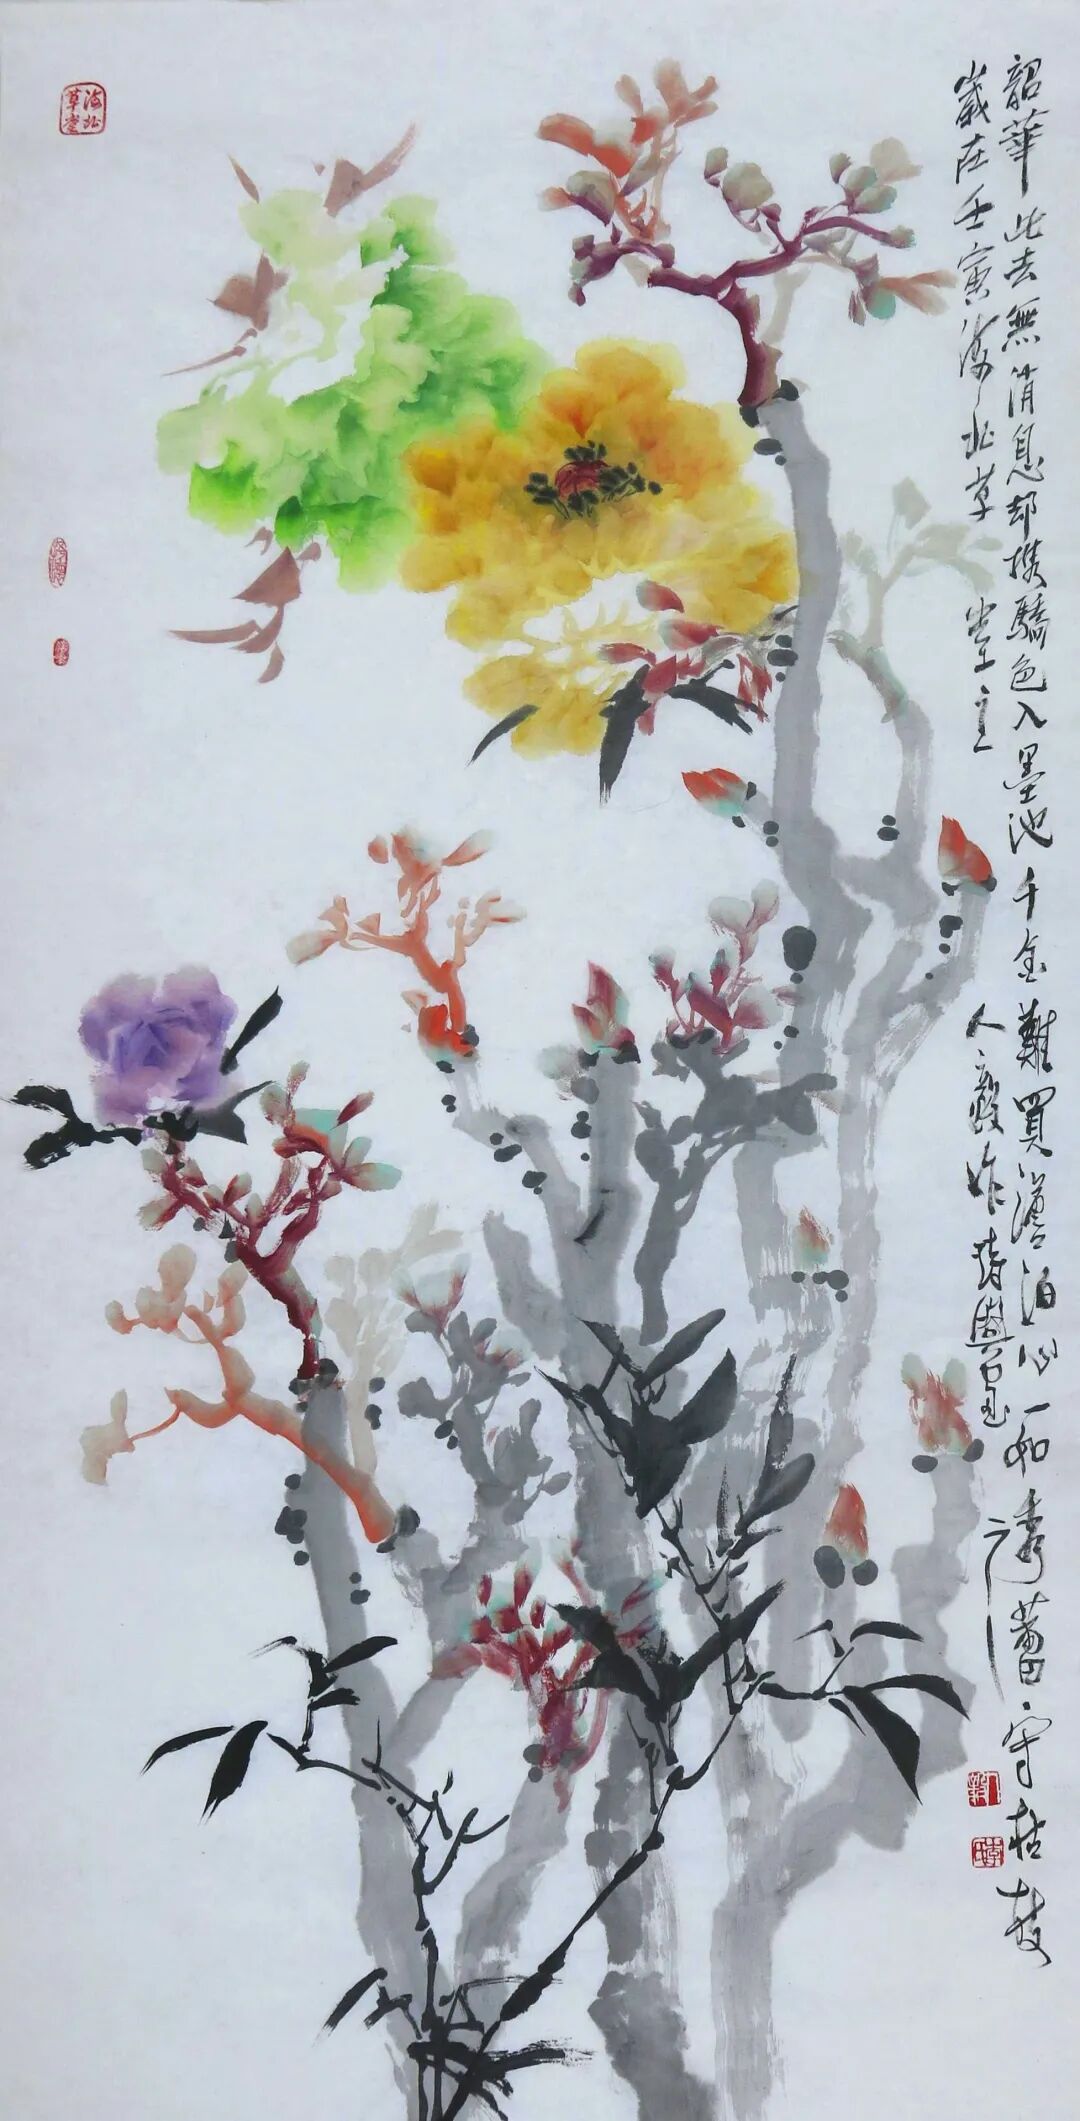 韶華此去無消息却攜驕色入墨池千金難買澹泊心一如蕾守枯枝
歲在壬寅海北草堂主人毅作詩與畫
海北
草堂